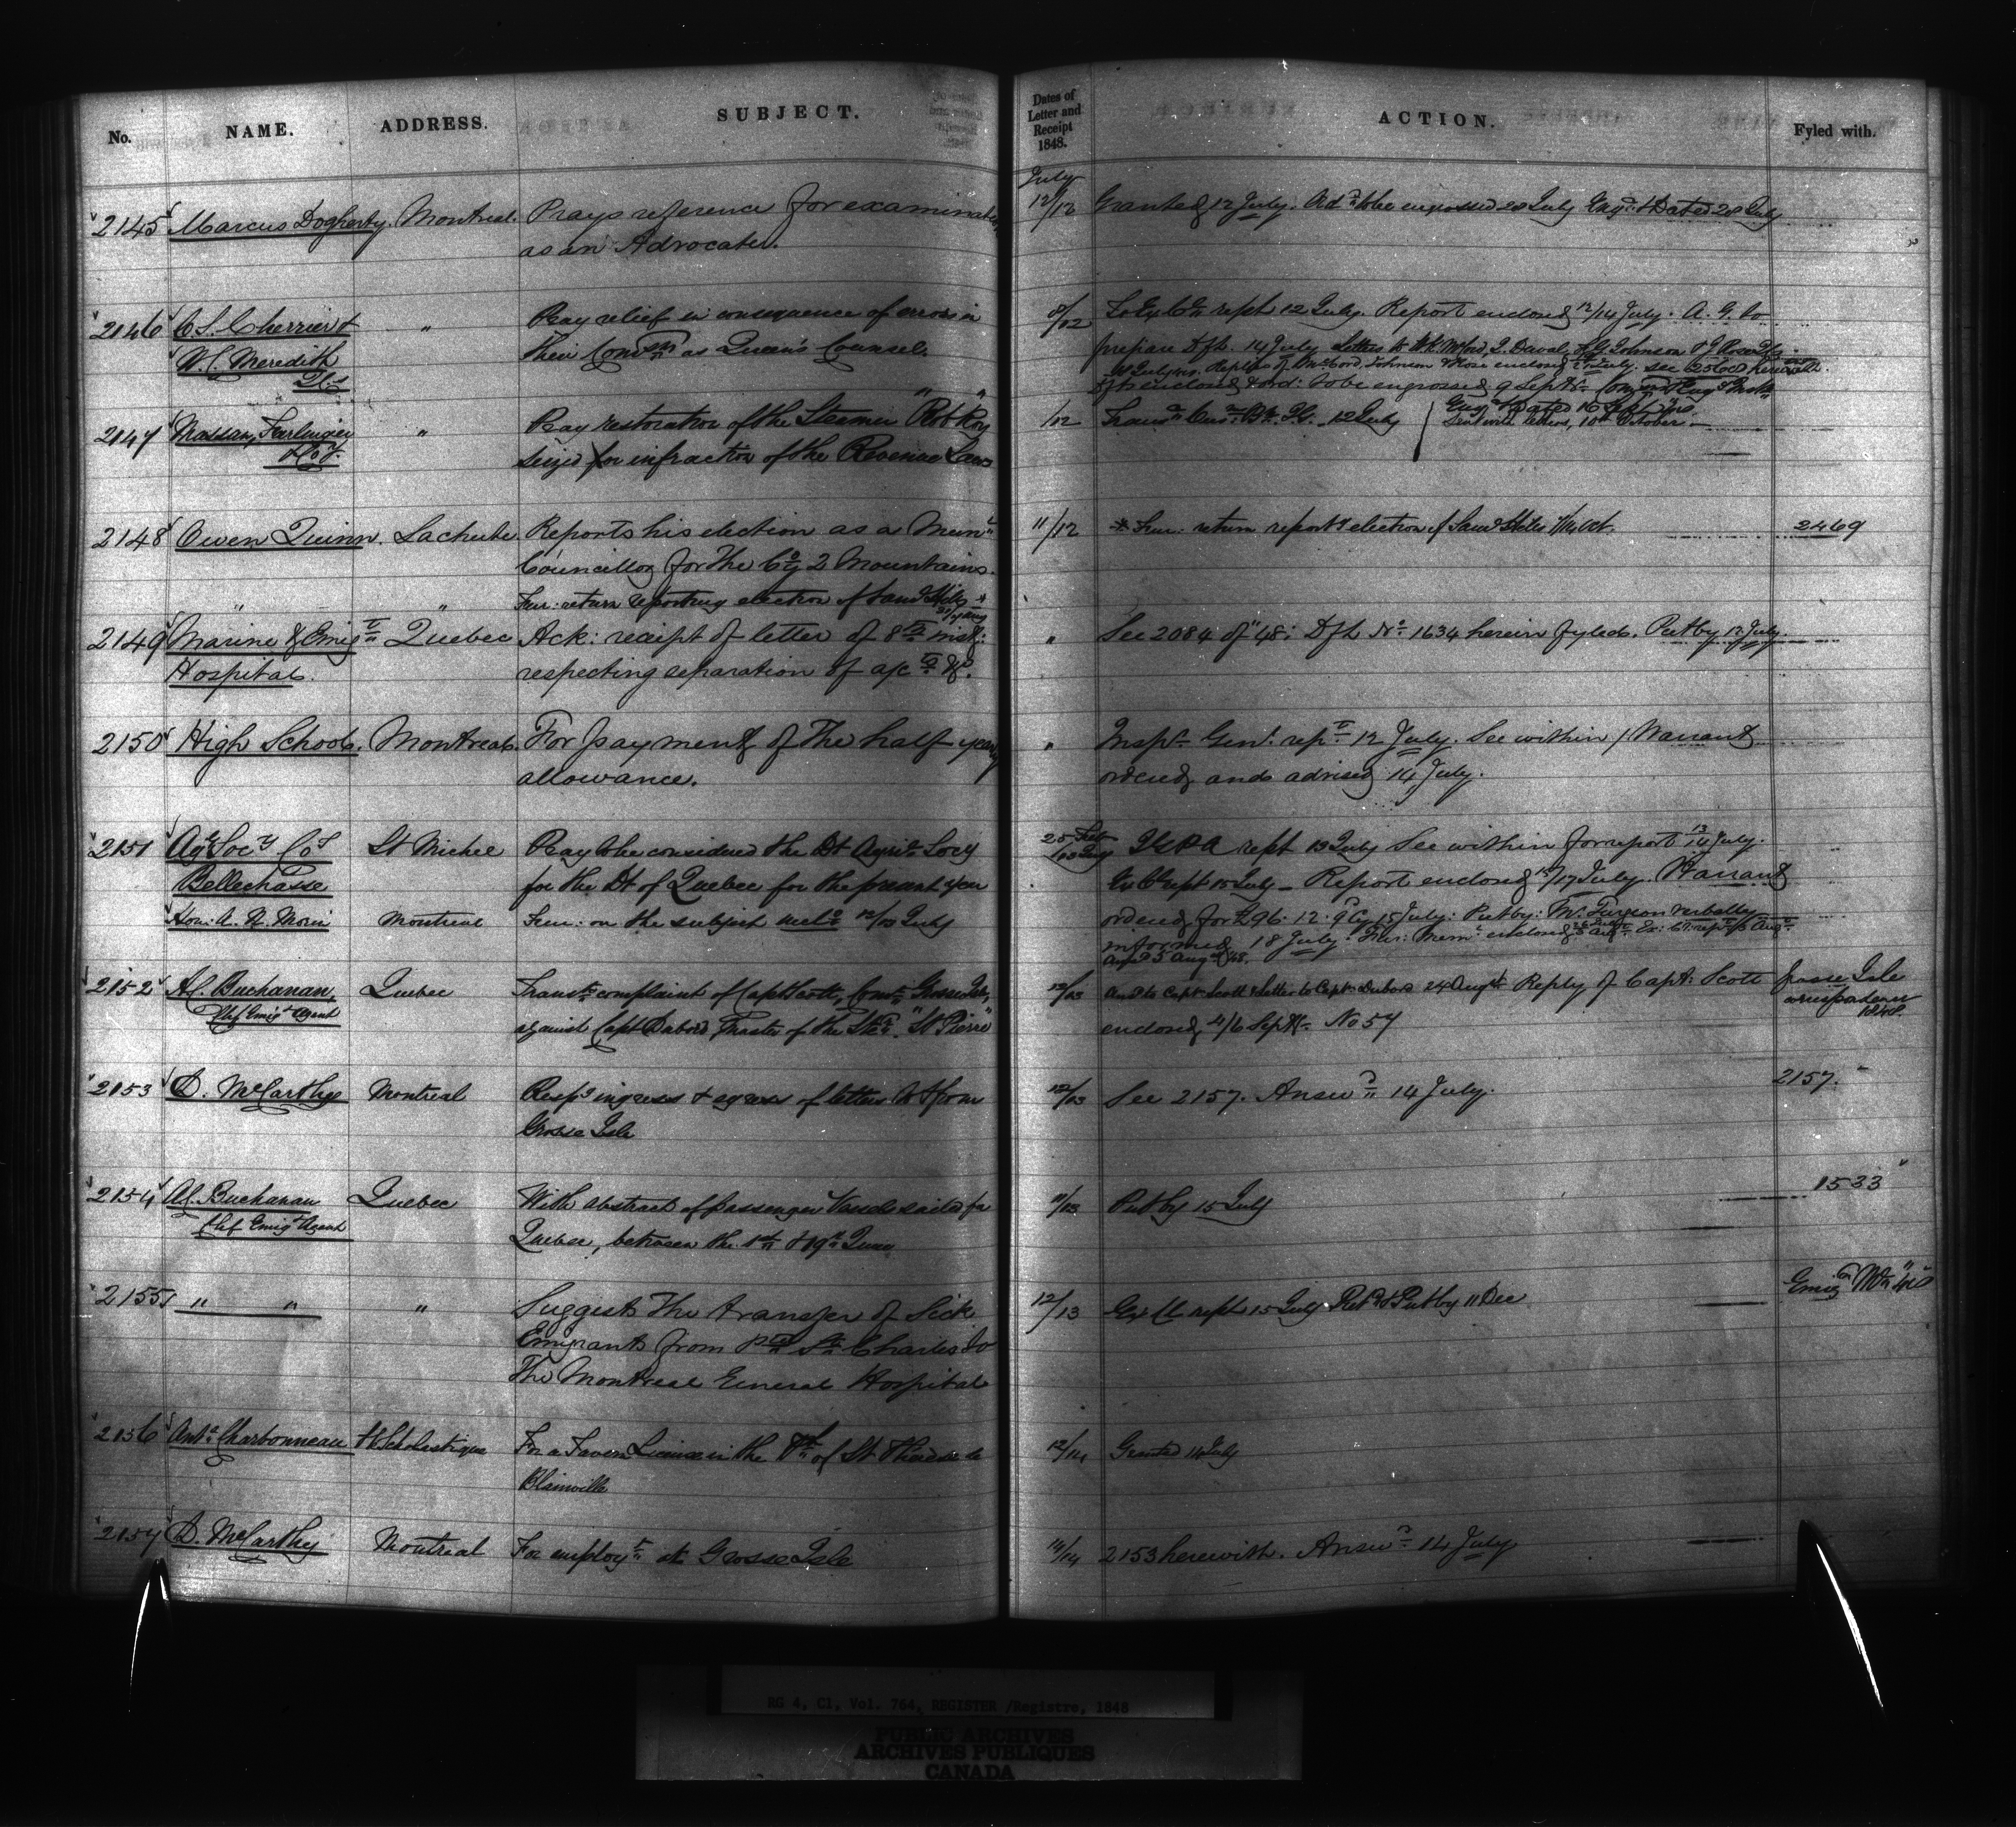 No. NAME. ADDRESS. SUBJECT.
2145 Marcus Dogherty. Montreal. Prays reference for examination
as an Advocate.
2146 C. S. Cherrier & " Pray relief in consequence of error in
W. C. Meredith their Comsn as Queen's Counsel.
2147 Massan, Farlinger " Pray restoration of the Steamer "Rob Roy"
& Co. seized for infraction of the Revenue Laws
2148 Owen Quinn. Lachute. Reports his election as a Munl
Councillor for the Coy 2 Mountains.
Fur: return reporting election of Saml Stiles
2149 Marine & Emigt Quebec Ack: receipt of letter of 8th inst:
Hospital. respecting separation of a/cts &c.
2150 High School. Montreal. For payment of the half yearly
allowance.
2151 Agl Socy Co St Michel Pray to be considered the Dt Agril Socy
Bellechasse for the Dt of Quebec for the present year
Hon: A. N. Morin Montreal Fur: on the subject 12/13 July
2152 A C. Buchanan, Quebec Transts complaint of Capt Scott, Comt Grosse Isle,
Chf Emigt Agent against Capt Dubois Master of the Str "St Pierre"
2153 D. McCarthy Montreal Respg ingress & egress of letters to & from
Grosse Isle
2154 A C. Buchanan Quebec With abstract of passenger Vessels sailed for
Chf Emigt Agent Quebec, between the 1st & 19th June
2155 " " " Suggests the transfer of Sick
Emigrants from Pt St Charles to
The Montreal General Hospital
2156 Ante Charbonneau St Scholastique For a Tavern License in the Ph of St Thérèse de
Blainville
2157 D. McCarthy Montreal For employt at Grosse Isle
Dates of
Letter and
Receipt
1848.
ACTION. Fyled with.
July
12/12 Granted 12 July. Ordd to be engrossed 28 July Engd & Dated 28 July
8/12 To Ex Cn rept 12 July. Report enclosed 12/14 July. A. G. to
prepare Dft. 14 July Letters to
Dfts enclosed & ord: to be engrossed 9 Septr
Engd & Dated 16 Septr
/12 12 July
Sent with letters, 10th October
11/12 Fur: return reportg election of Saml Stiles 2469
" See 2084 of "48; Dft No 1634 herein fyled. Put by 12 July
" Inspr Genl rept 12 July. See within / Warrant
ordered and advised 14 July.
13/14 July.
I G P A rept 13 July See within for report
Ex C rept 15 July - Report enclosed 15/17 July. Warrant
ordered for £96. 12. 9 Cy 15 July: Put by: Mr. Turgeon verbally
informed 18 July.
12/13 Capt Scott & letter to Capt Dubois 24 Augt Reply of Capt: Scott Grosse Isle
correspondence
1848.
enclosed 4/6 Septr No 57
12/13 See 2157. Answd 14 July. 2157.
11/13 Put by 15 July 1533
12/13 Ex C rept 15 July Retd & Put by 11 Dec
12/14 Granted 14 July
14/14 2153 herewith. Answd 14 July
RG 4, C1, Vol. 764, REGISTER /Registre, 1848
PUBLIC ARCHIVES
ARCHIVES PUBLIQUES
CANADA